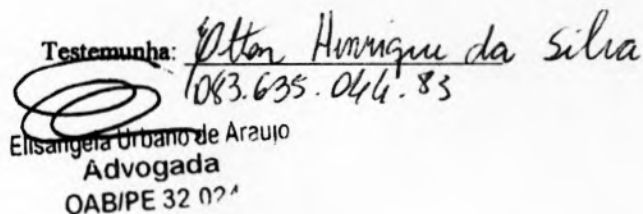 Testemunha: Otton Henrique da Silva
083.635.044.83
Elisangela Urbano de Araujo
Advogada
OAB/PE 32 024